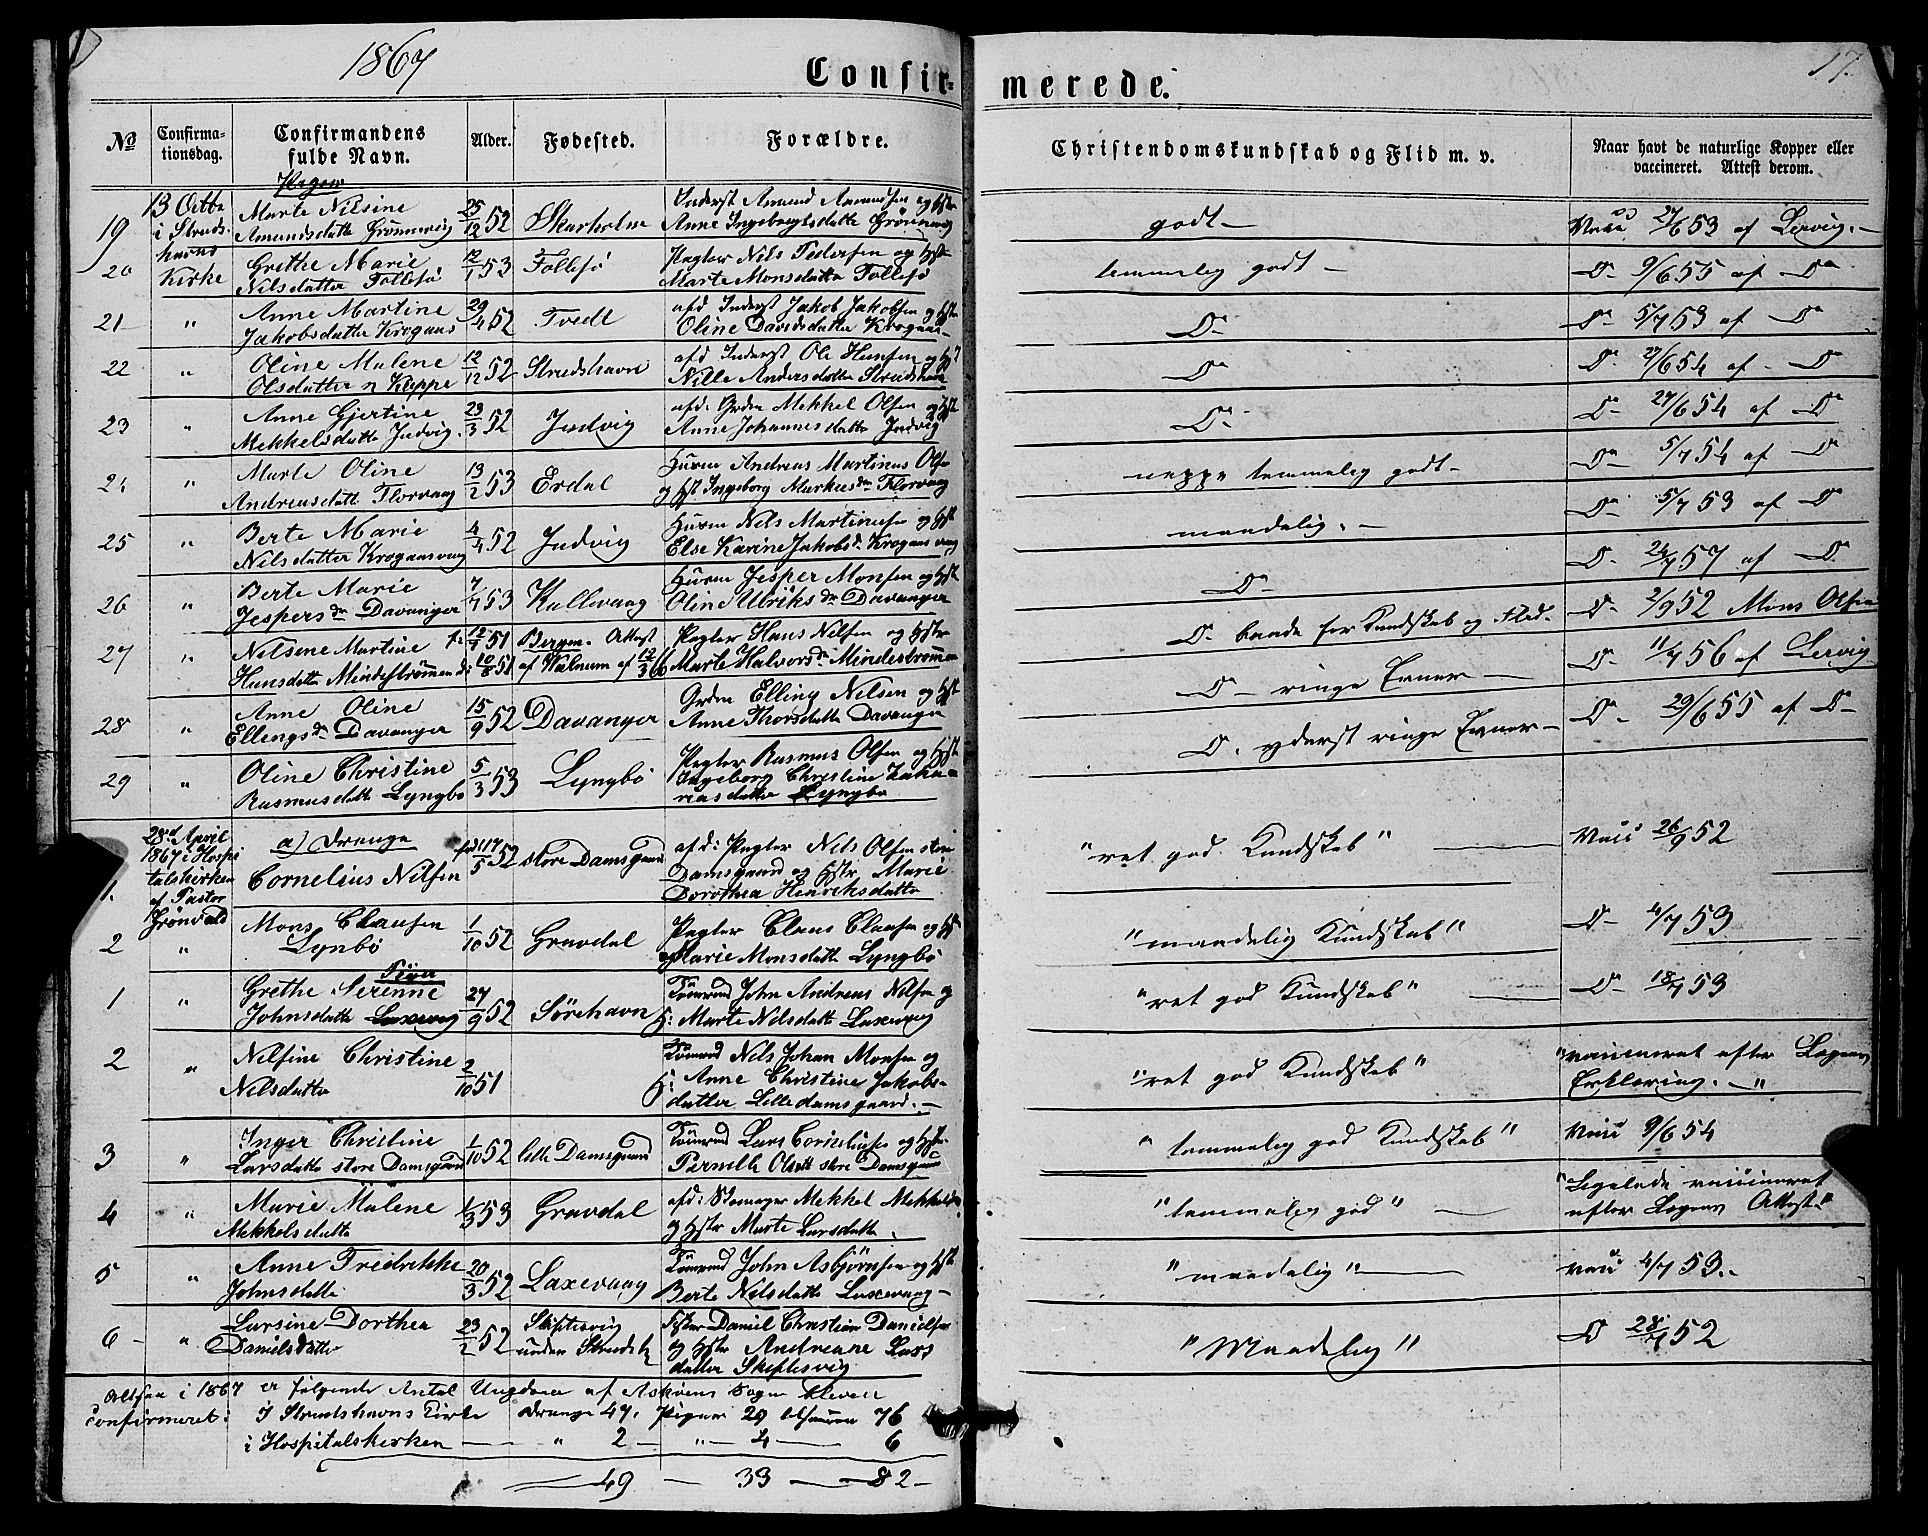 1867
17.
Confirmerede.
No
Confirmationsdag.
Confirmandens fulde Navn.
Alder.
Fødested.
Forældre.
Christendomskundskab og Flid m. v.
Naar havt de naturlige Kopper eller vaccineret. Attest derom.
Piger
19
13 Octbr i Strudshavns Kirke
Marte Nilsine
Amundsdatter Grønnevig
25/12 52
Skarholm
Inderst Amund Amundsen og Hstr
Anne Ingebregtsdatter Grønnevig
godt
Vacc 27/6 53 af Lervig.
20
Grethe Marie
Nilsdatter Follesø
12/1 53
Follesø
Pagter Nils Pedersen og Hstr
Marte Monsdatter Follesø
temmelig godt
Do 9/6 55 af Do
21
"
Anne Martine
Jakobsdatter Krogaas
29/4 52
Tvedt
afd Inderst Jakob Jakobsen og Hstr
Oline Davidsdatter Krogaas
Do
Do 5/7 53 af Do
22
"
Oline Malene
Olsdatter n Kleppe
12/12 52
Strudshavn
afd Inderst Ole Hansen og Hst
Nille Andersdatter Strudshavn
Do
Do 27/6 54 af Do
23
"
Anne Gjertine
Mekkelsdatter Indvig
23/3 52
Indvig
afd. Grdm Mekkel Olsen og Hst
Anne Johannesdatter Indvig
Do
Do 27/6 54 af Do
24
"
Marte Oline
Andreasdatt Florvaag
13/2 53
Erdal
Husm Andreas Martinus Olsen
og Hst Ingeborg Markusdr Florvaag
neppe temmelig godt
Do 5/7 54 af Do
25
"
Berte Marie
Nilsdatter Krogaasvaag
4/4 52
Indvig
Husm Nils Martinsen og Hst
Else Karine Jakobsd. Krogaasvaag
maadelig.
Do 5/7 53 af Do
26
"
Berte Marie
Jespersdr Davanger
7/4 53
Kallevaag
Husm Jesper Monsen og Hst
Oline Ulriksdr Davanger
Do
Do 24/7 57 af Do
27
"
Nilsine Martine
Hansdatter Mindestrømmen
f: 12/7 51
d: 10/8 51
Bergen. Attest
af Walnum af 12/3 66
Pagter Hans Nilsen og Hstr
Marte Halvorsdr Mindestrømmen
Do baade for Kundskab og Flid.
Do 2/9 52 Mons Olsen
28
"
Anne Oline
Ellingsdr Davanger
15/9 52
Davanger
Grdm Elling Nilsen og Hst
Anne Thorsdatter Davanger
Do ringe Evner
Do 11/7 56 af Lervig
29
"
Oline Christine
Rasmusdatter Lyngbø
5/3 53
Lyngbø
Pagter Rasmus Olsen og Hstr
Ingeborg Christine Zakariasdatter Lyngbø
Do. yderst ringe Evner
Do 29/6 55 af Do
28d April 1867 i Hospitalskirken af Pastor Grønvold
a) Drenge
1.
Cornelius Nilsen
fød 17/5 52
store Damsgaard
afd: Pagter Nels Olsen store
Damsgaard og Hstr Marie
Dorothea Henriksdatter
"ret god Kundskab"
Vacc 26/9 52
2
"
Mons Clausen
Lynbø
1/10 52
Gravdal
Pagter Claus Clausen og Hst
Marie Monsdatter Lyngbø
"maadelig Kundskab"
Do 4/7 53
Piger
1
"
Grethe Serenne
Johnsdatter Laxevaag
27/9 52
Sørehavn
Tømmd John Andreas Nilsen og
H: Marte Nelsdatter Laxevaag
"ret god Kundskab"
Do 18/7 53
2
"
Nilsine Christine
Nilsdatter
2/10 51
Tømmd Nels Johan Monsen og
H: Anne Christine Jakobsdatter Lille damsgaard.
"ret god Kundskab"
"vaccineret efter Lægens
Erklæring."
3
"
Inger Christine
Larsdatter store Damsgaard
1/10 52
lille Damsgaard
Tømmd Lars Corneliusen og Hstr.
Pernelle Olsdtt store Damsgaard
"temmelig god Kundskab"
Vacc 9/6 54
4
"
Marie Malene
Mekkelsdatter
1/3 53
Gravdal
afd: Mekkel Mekkelsen
og Hstr Marte Larsdatter
"temmelig god"
"Ligeledes vaccineret
efter Lægens Attest."
5
"
Anne Fredrikke
Johnsdatter
20/3 52
Laxevaag
Tømmd John Asbjørnsen og Hst
Berte Nelsdatter Laxevaag
"maadelig"
vacc 4/7 53.
6
"
Larsine Dorthea
Danielsdatter
23/2 52
Skiftesvig
under Strudsh
Daniel Christian Danielsen
og Hstr Andreane Larsdatter Skiftesvig
"Maadelig"
Do 28/7 52
Altsaa i 1867 er følgende Antal Ungdom af Askøens Sogn bleven
confirmeret:
I Strudshavns Kirke Drenge 47. Piger 29 tilsammen 76
i Hospitalskirken " 2 " 4 6
49 33 82